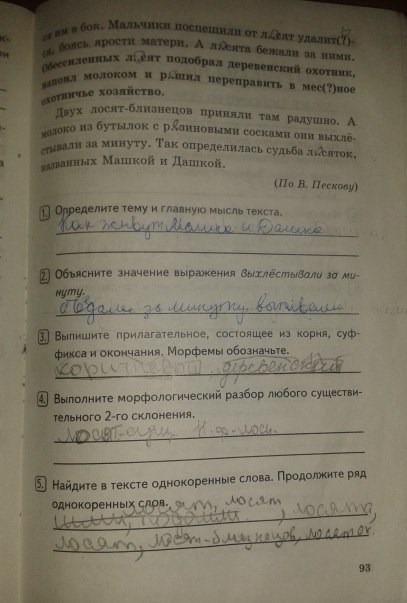 ся им в бок. Мальчики поспешили от лосят удалит(?)-
ся, боясь ярости матери. А лосята бежали за ними.
Обессиленных лосят подобрал деревенский охотник,
напоил молоком и решил переправить в мес(?)ное
охотничье хозяйство.
Двух лосят-близнецов приняли там радушно. А
молоко из бутылок с резиновыми сосками они выхлё-
стывали за минуту. Так определилась судьба лосяток,
названных Машкой и Дашкой.
(По В. Пескову)
1. Определите тему и главную мысль текста.
Как живут Машка и Дашка
2. Объясните значение выражения выхлёстывали за ми-
нуту.
за минутку выпивали
3. Выпишите прилагательное, состоящее из корня, суф-
фикса и окончания. Морфемы обозначьте.
коричневой деревенский
4. Выполните морфологический разбор любого существи-
тельного 2-го склонения.
лосят
5. Найдите в тексте однокоренные слова. Продолжите ряд
однокоренных слов.
лосят, лосята,
лосят, лосят-близнецов, лосяток.
93